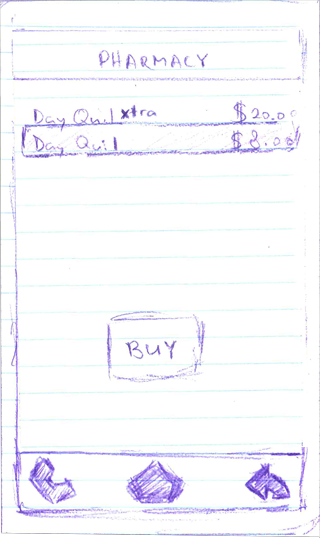 PHARMACY
Day Quil xtra $20.00
Day Quil $8.00
BUY